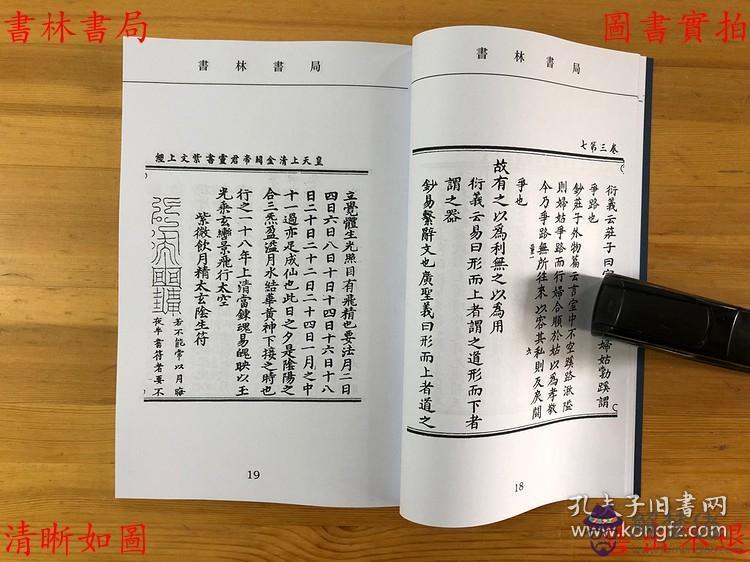 書林書局
圖書實拍
書林書局
卷三第七
衍義云莊子曰室
婦姑勃蹊謂
爭路也
鈔莊子外物篇云言室中不空蹊路湫隘
則婦姑爭路而行婦合順於姑以為孝敬
今乃爭路無所往來以容其私則反戾間
爭也
故有之以為利無之以為用
衍義云易曰形而上者謂之道形而下者
謂之器
鈔易繫辭文也廣聖義曰形而上者道之
18
書林書局
皇天上清金闕帝君靈書紫文上經
立覺體生光照目有飛精也要法月二日
四日六日八日十日十四日十六日十八
日二十日二十二日二十四日一月之中
十一過亦足成仙也此日之夕是陰陽之
合三炁盈溢月水結華黃神下接之時也
行之一十八年上清當鍊魂易魄映以玉
光乘玄轡景飛行太空
紫微飲月精太玄陰生符
若不能常以月晦
夜半書符者要不
19
清晰如圖
孔夫子旧書网
www.kongfz.com